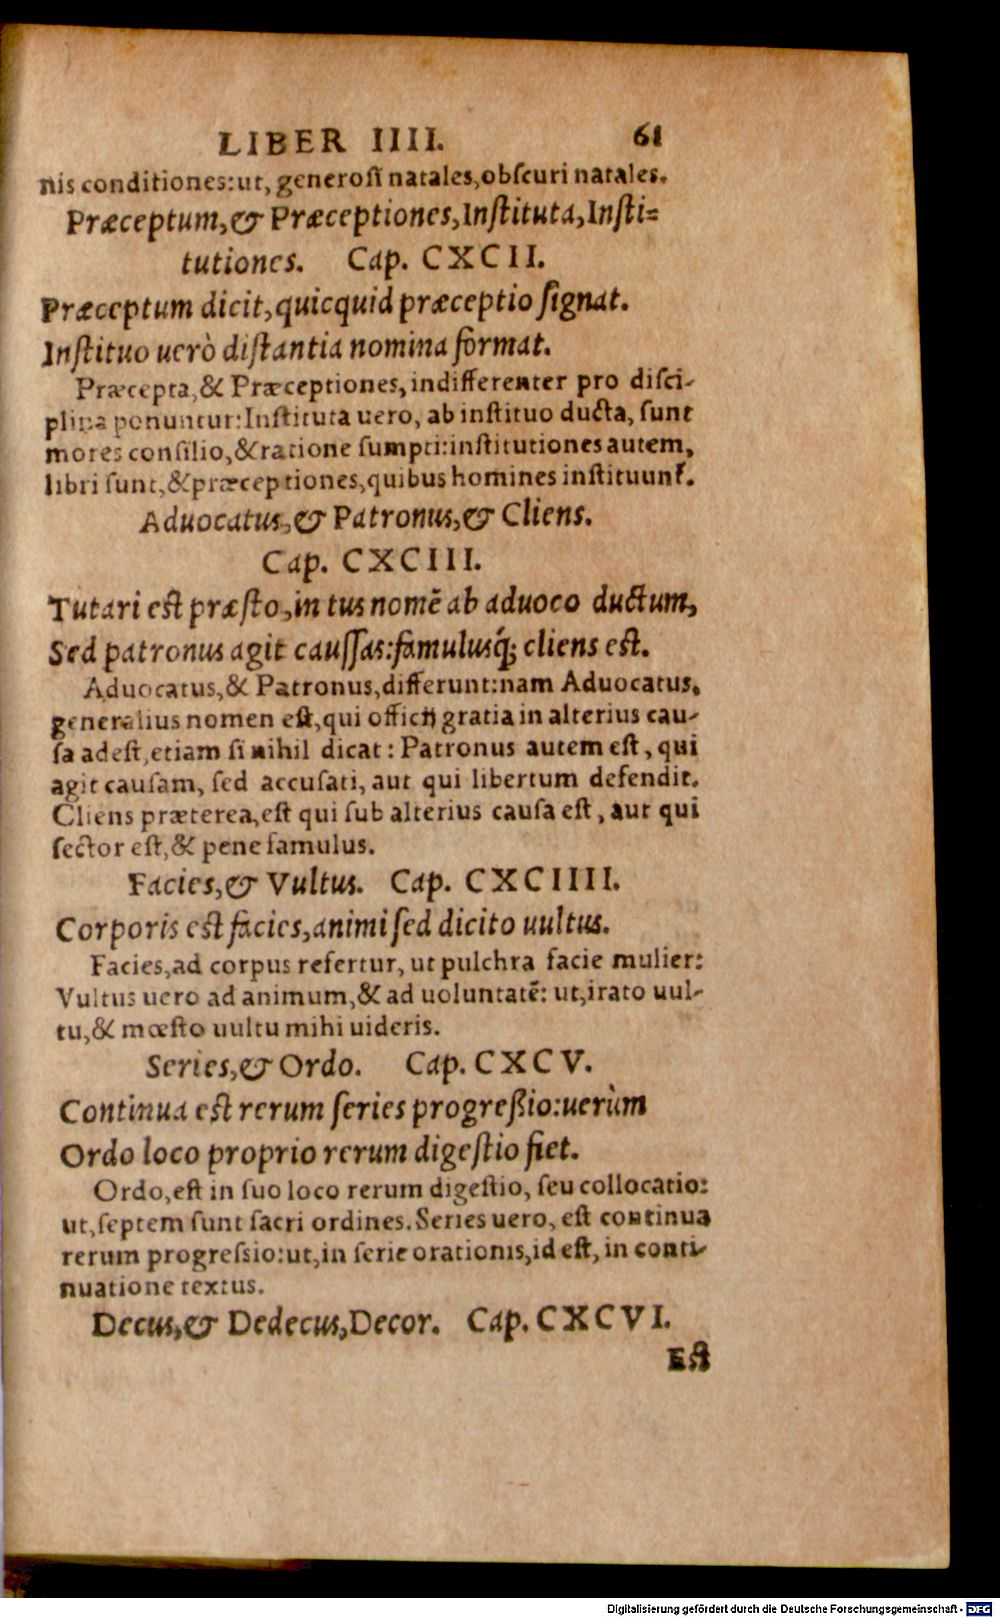 LIBER IIII. 61
nis conditiones:ut, generosi natales,obscuri natales.
Præceptum,& Præceptiones,Instituta,Insti=
tutiones. Cap. CXCII.
Præceptum dicit,quicquid præceptio signat.
Instituo uerò distantia nomina format.
Præcepta,& Præceptiones, indifferenter pro disci-
plina ponuntur:Instituta uero, ab instituo ducta, sunt
mores consilio,& ratione sumpti:institutiones autem,
libri sunt,& præceptiones,quibus homines instituunť.
Aduocatus,& Patronus,& Cliens.
Cap. CXCIII.
Tutari est præsto,in tus nomẽ ab aduoco ductum,
Sed patronus agit caussas:famulusq́; cliens est.
Aduocatus,& Patronus,differunt:nam Aduocatus,
generalius nomen est,qui officij gratia in alterius cau-
sa adest,etiam si nihil dicat: Patronus autem est, qui
agit causam, sed accusati, aut qui libertum defendit.
Cliens præterea,est qui sub alterius causa est, aut qui
sector est,& pene famulus.
Facies,& Vultus. Cap. CXCIIII.
Corporis est facies,animi sed dicito uultus.
Facies,ad corpus refertur, ut pulchra facie mulier:
Vultus uero ad animum,& ad uoluntatẽ: ut,irato uul-
tu,& mœsto uultu mihi uideris.
Series,& Ordo. Cap. CXCV.
Continua est rerum series progreßio:uerùm
Ordo loco proprio rerum digestio fiet.
Ordo,est in suo loco rerum digestio, seu collocatio:
ut,septem sunt sacri ordines. Series uero, est continua
rerum progressio:ut,in serie orationis,id est, in conti-
nuatione textus.
Decus,& Dedecus,Decor. Cap. CXCVI.
Est
Digitalisierung gefördert durch die Deutsche Forschungsgemeinschaft - DFG